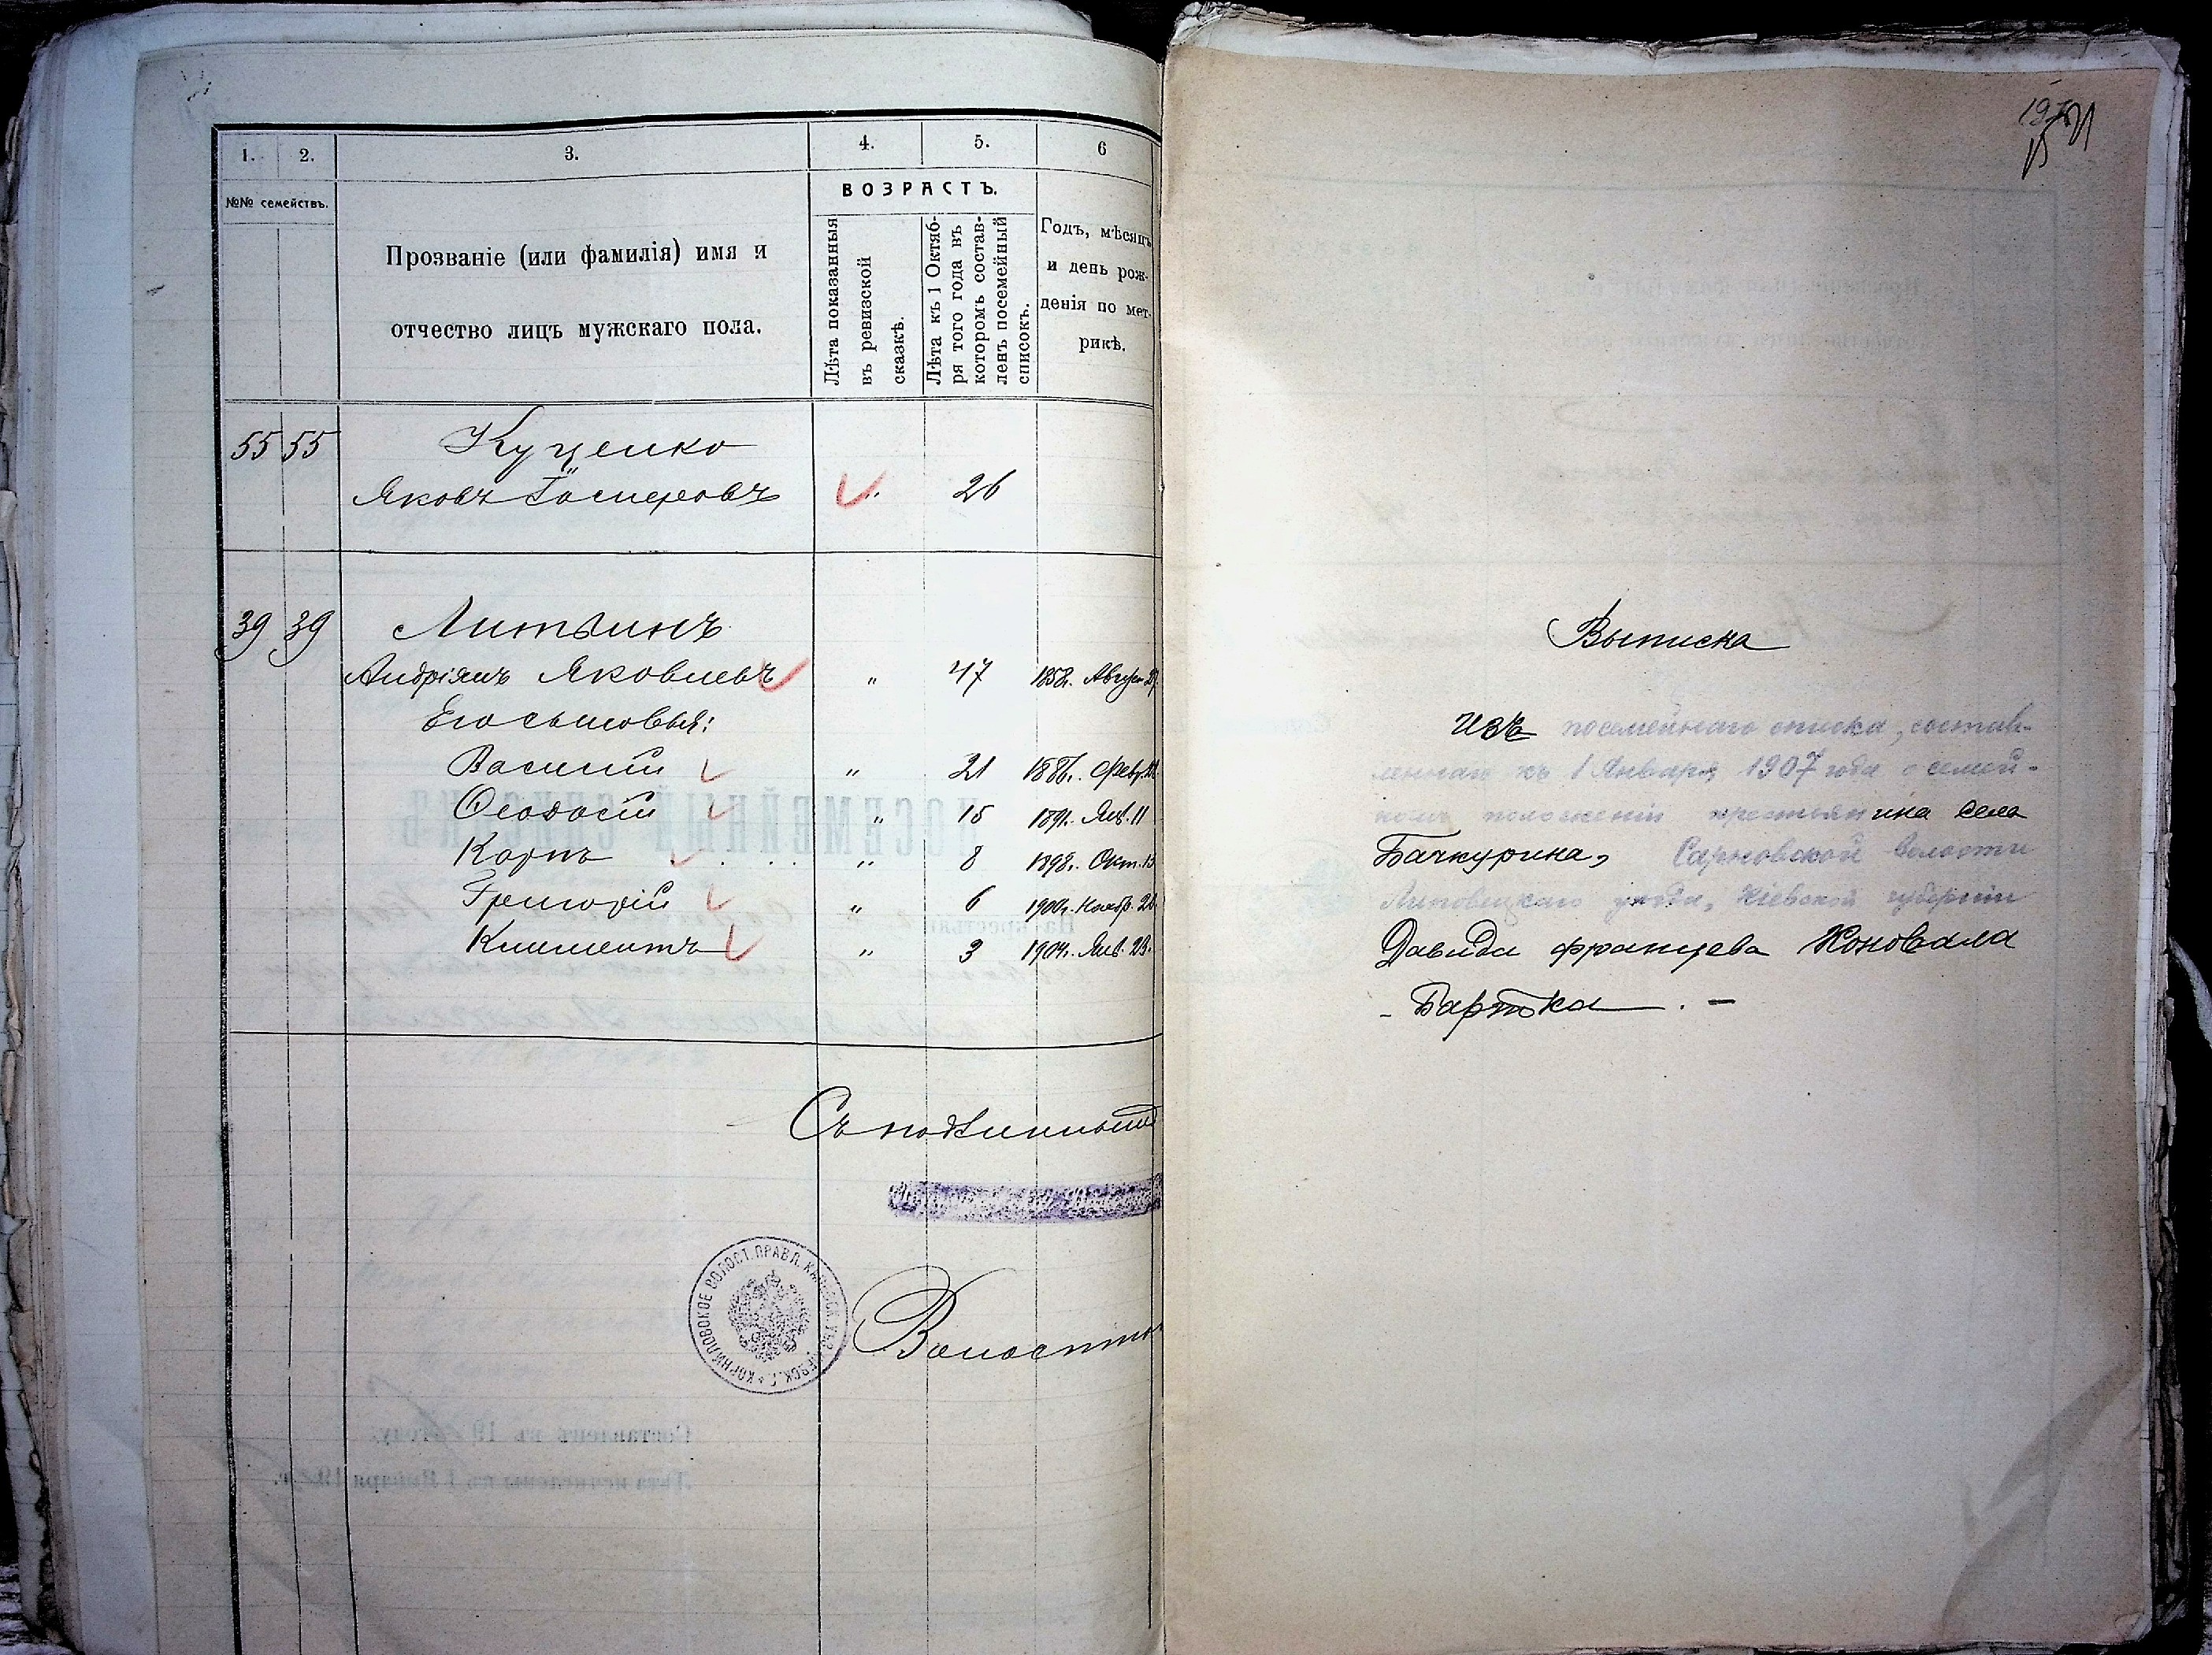 1. 2. 3. 4. 5. 6
№№ семействъ.
Прозваніе (или фамилія) имя и
отчество лицъ мужскаго пола.
ВОЗРАСТЪ.
Лѣта показанныя
въ ревизской
сказкѣ.
Лѣта къ 1 Октяб-
ря того года въ
которомъ состав-
ленъ посемейный
списокъ.
Годъ, мѣсяцъ
и день рож-
денія по мет-
рикѣ.
55 55 Куценко
Яковъ Іосифовъ " 26
39 39 Литвинъ
Андріянъ Яковлевъ " 47 1858г. Август.
Его сыновья:
Василій " 21 1886г. Февр.
Ѳеодосій " 15 1891г. Янв. 11
Карпъ " 8 1898г. Окт. 13
Григорій " 6 1900г. Ноябр.
Климентъ " 3 1904г. Янв. 23.
Съ подлиннымъ
КОРНИЛОВСКОЕ ВОЛОСТ. ПРАВЛ. КАНЕВСК. УѢЗ. КІЕВСК. Г.
Волостно
Составленъ въ 19 году.
Лѣта исчислены къ 1 Января 19 г.
Выписка
изъ посемейнаго списка, состав-
леннаго къ 1 Января 1907 года о семей-
номъ положеніи крестьянина села
Бачкурина, Сарновской волости
Липовецкаго уѣзда, Кіевской губерніи
Давида Францева Коновала
- Бартка. -